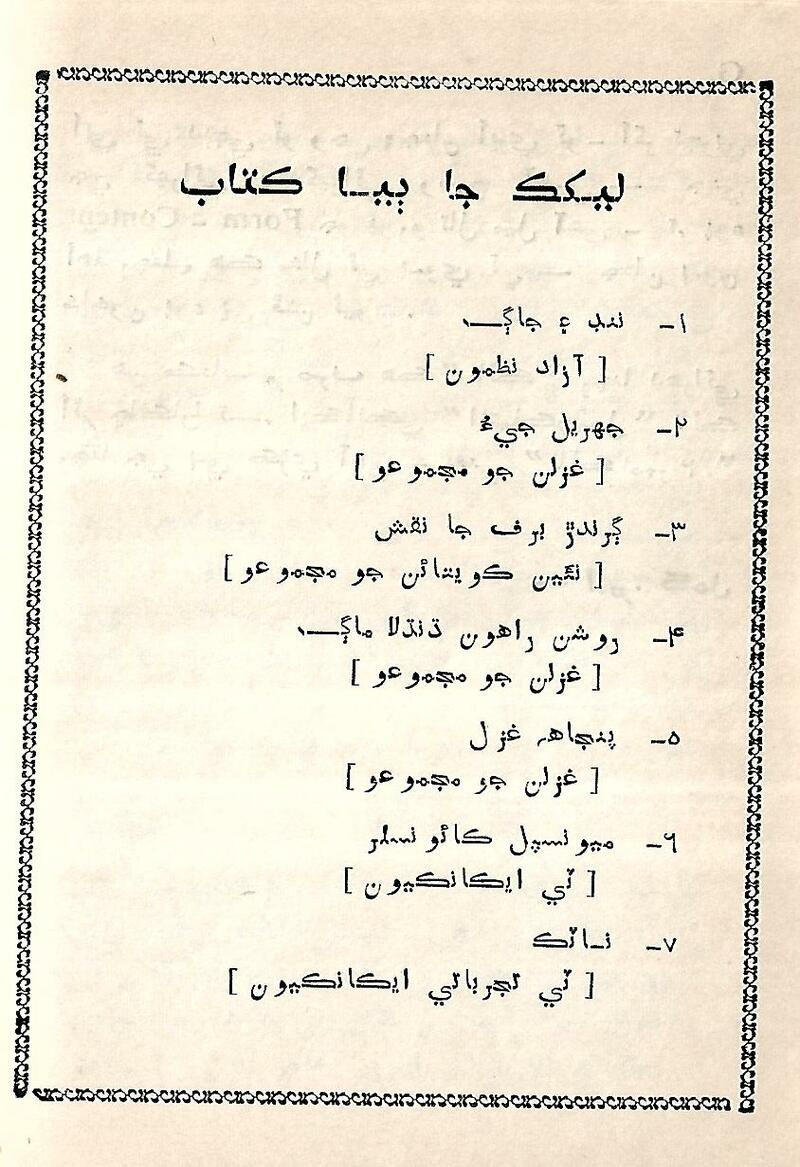 ليکڪ جا ٻيا ڪتاب
١- ننڊ ۽ جاڳ۔
[ آزاد نظمون ]
٢- جهريل جيءُ
[ غزلن جو مجموعو ]
٣- ڳرندڙ برف جا نقش
[ نئين ڪويتائن جو مجموعو ]
۴- روشن راهون ڌنڌلا ماڳ۔
[ غزلن جو مجموعو ]
٥- پنجاهه غزل
[ غزلن جو مجموعو ]
٦- ميونسپل ڪائونسلر
[ ٽي ايڪانڪيون ]
٧- ناٽڪ
[ ٽي تجرباتي ايڪانڪيون ]